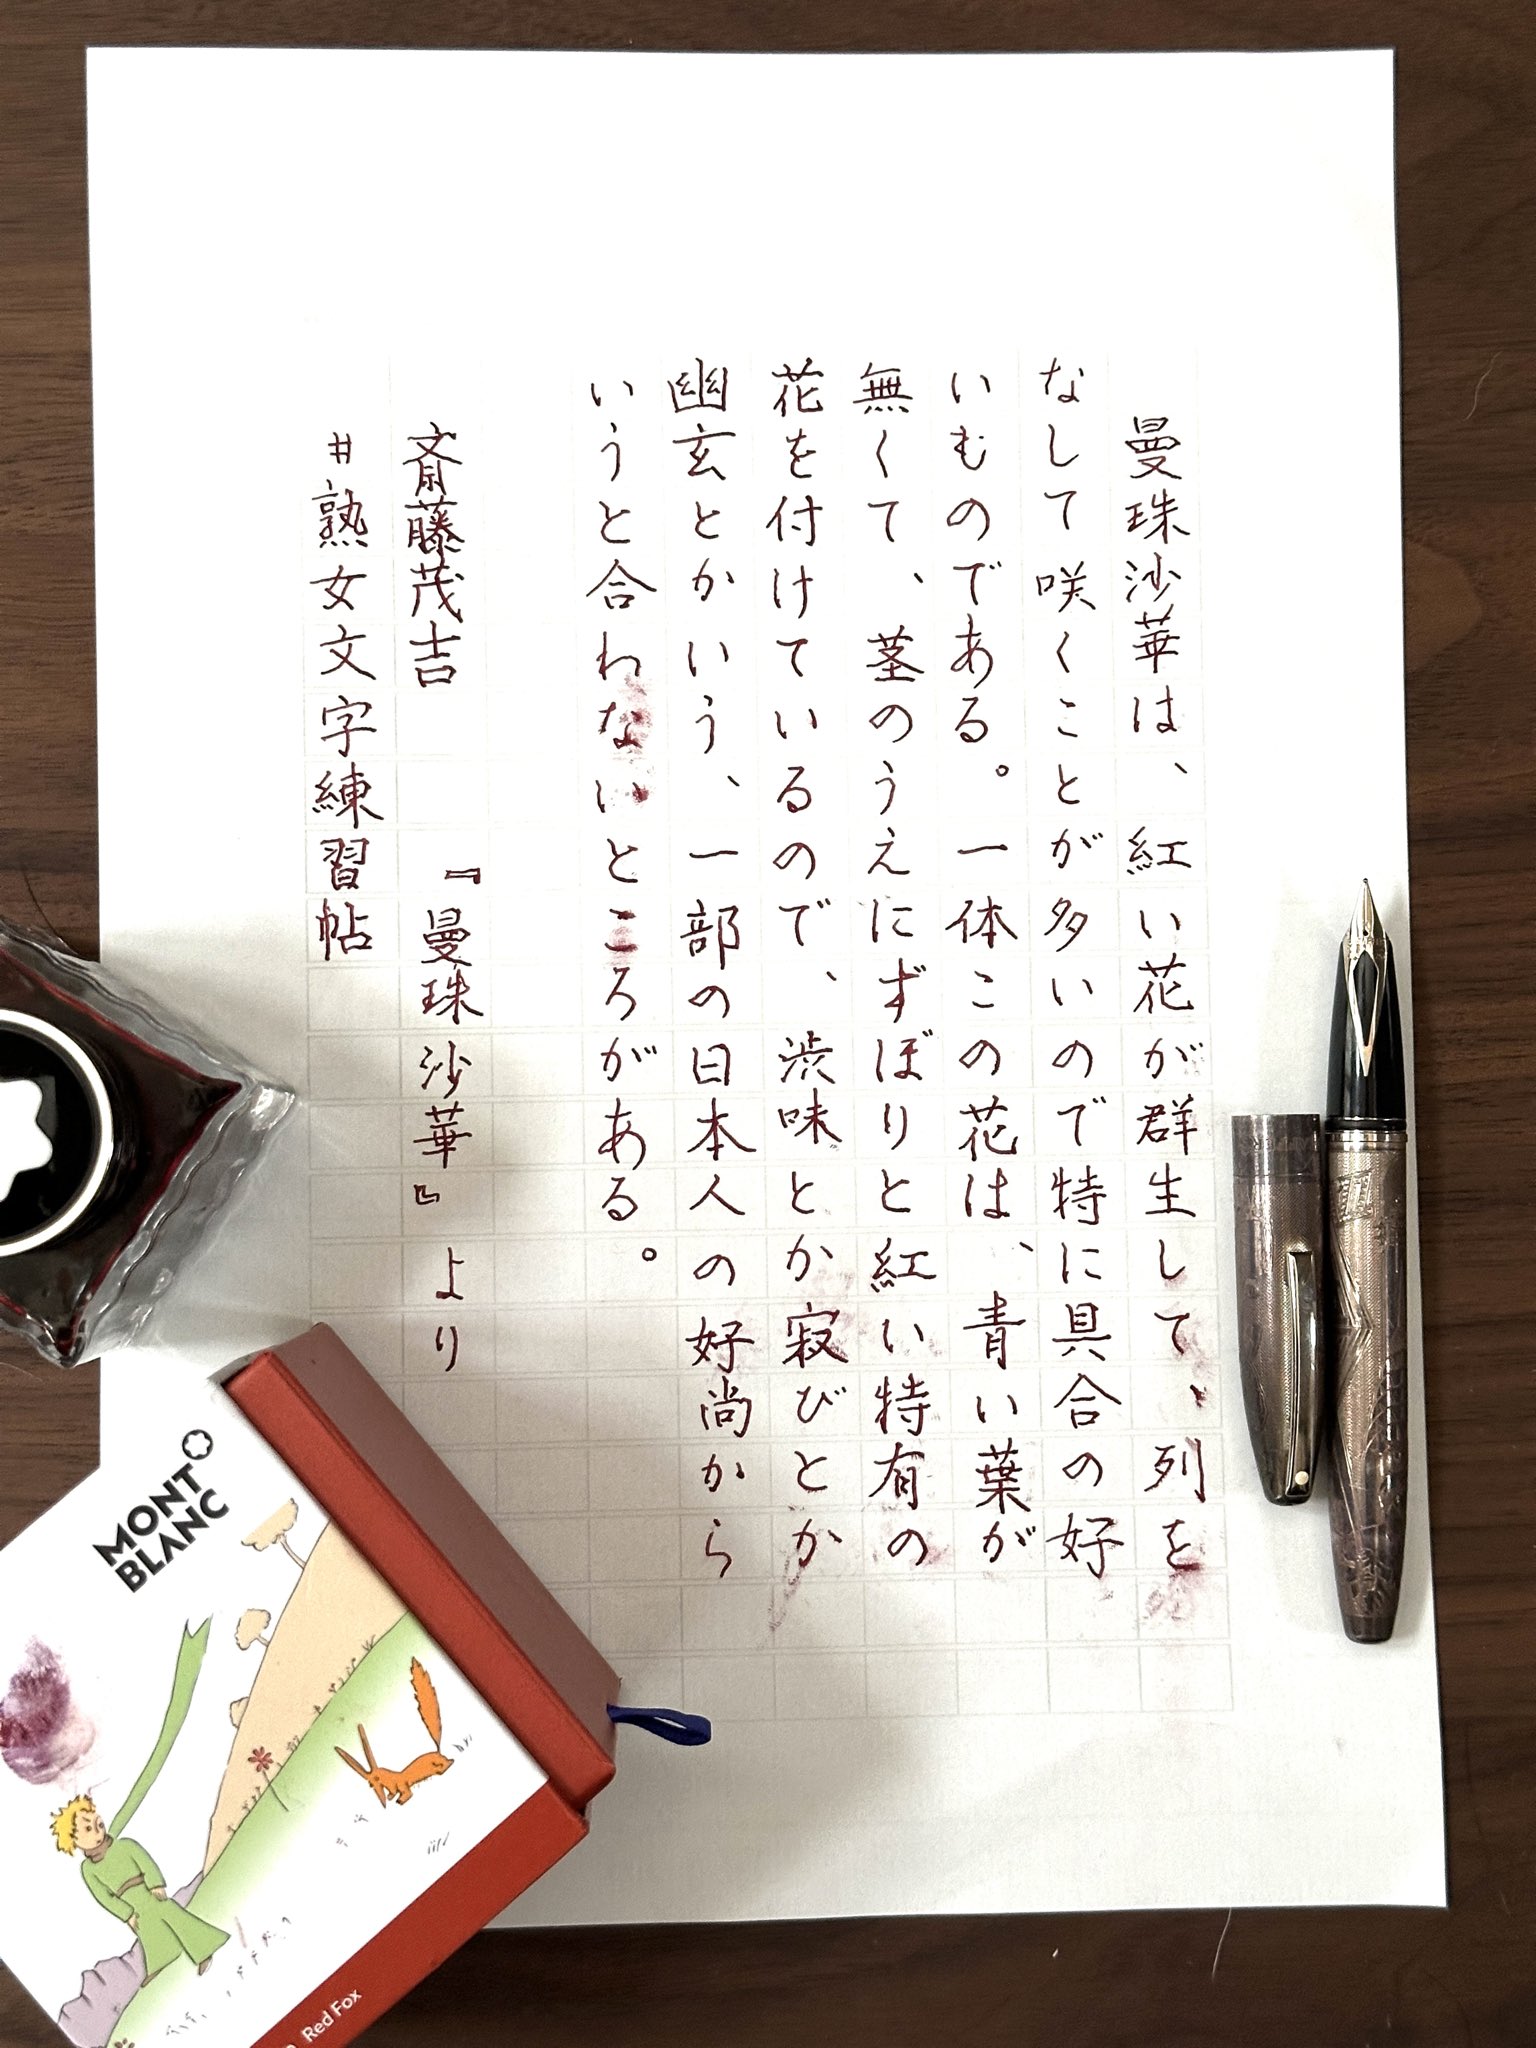 曼珠沙華は、紅い花が群生して、列を
なして咲くことが多いので特に具合の好
いものである。一体この花は、青い葉が
無くて、茎のうえにずぼりと紅い特有の
花を付けているので、渋味とか寂びとか
幽玄とかいう、一部の日本人の好尚から
いうと合わないところがある。
斎藤茂吉 『曼珠沙華』より
#熟女文字練習帖
MONT
BLANC
Red Fox